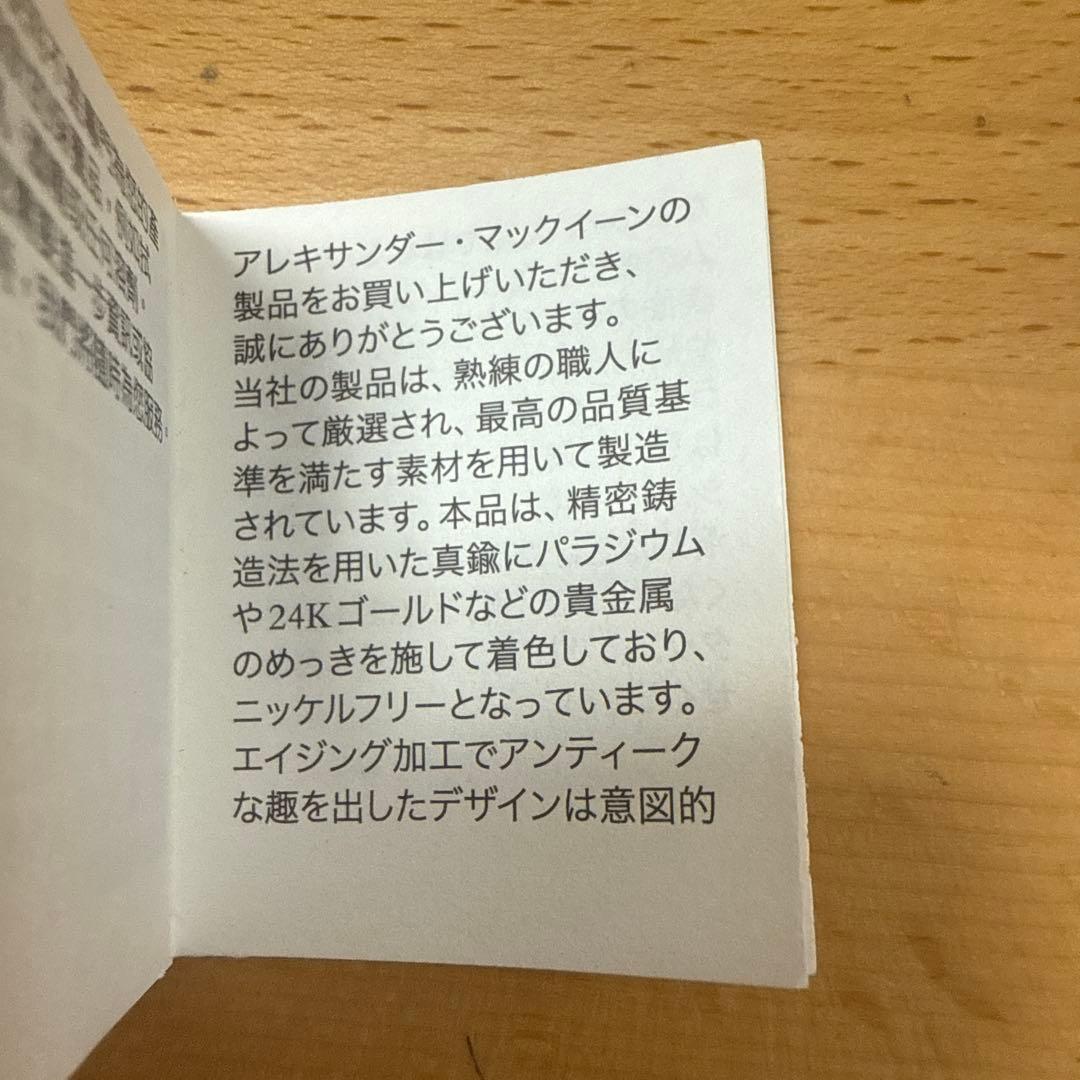 アレキサンダー・マックイーンの
製品をお買い上げいただき、
誠にありがとうございます。
当社の製品は、熟練の職人に
よって厳選され、最高の品質基
準を満たす素材を用いて製造
されています。本品は、精密鋳
造法を用いた真鍮にパラジウム
や24Kゴールドなどの貴金属
のめっきを施して着色しており、
ニッケルフリーとなっています。
エイジング加工でアンティーク
な趣を出したデザインは意図的